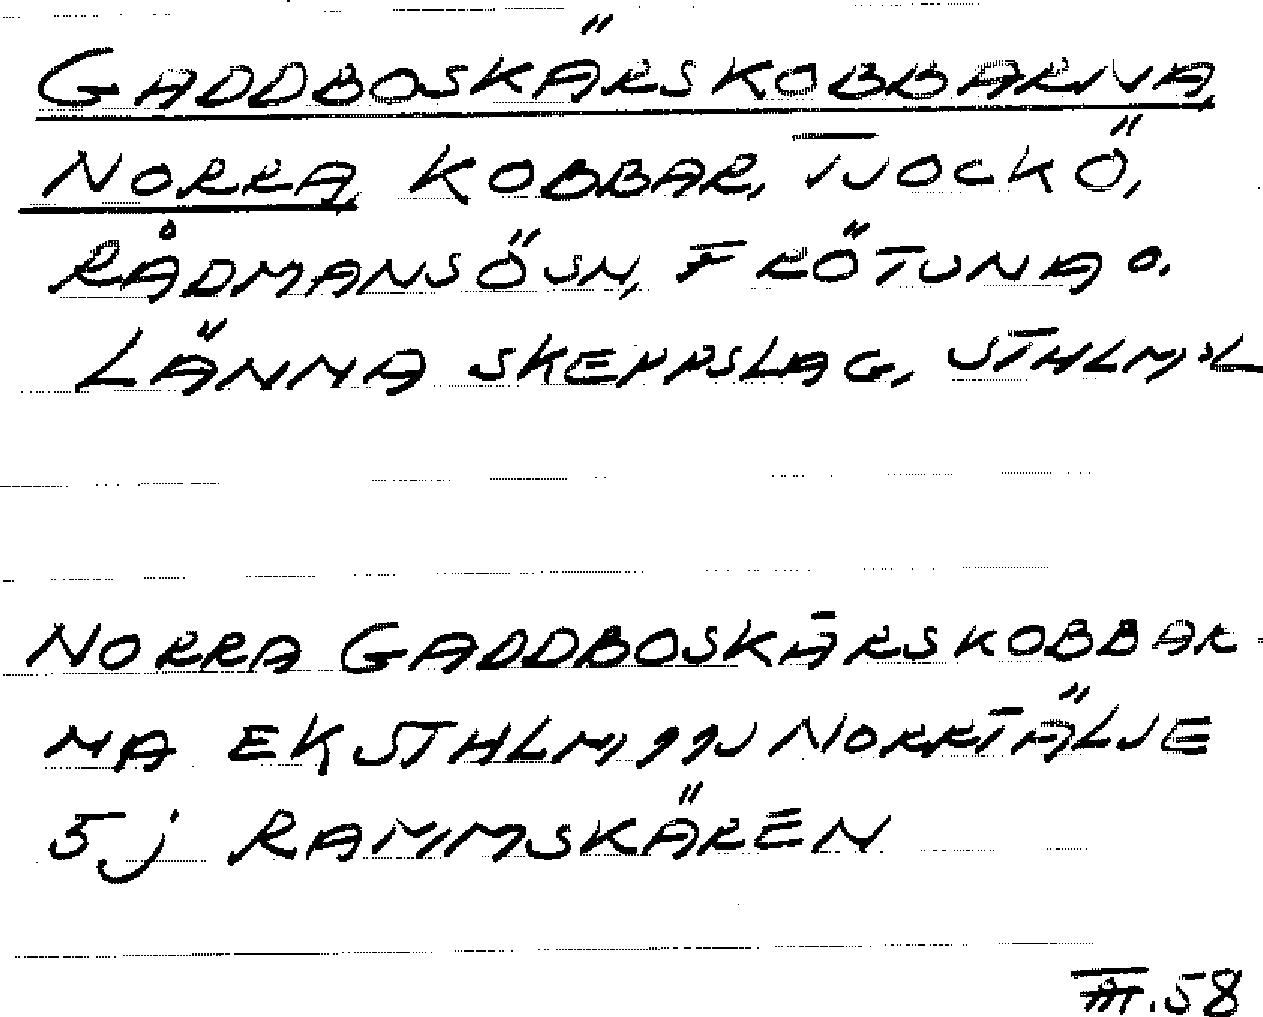 GADDBOSKÄRSKOBBARNA,
NORRA, KOBBAR, TJOCKÖ,
RÅDMANSÖSN, FRÖTUNA O.
LÄNNA SKEPPSLAG, STHLM:L
NORRA GADDBOSKÄRSKOBBAR-
NA EK STHLM, 99J NORRTÄLJE
5j RAMMSKÄREN
.58